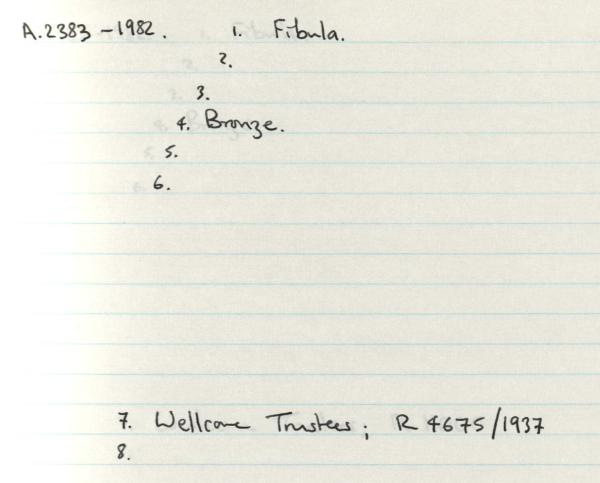 A.2383-1982. 1. Fibula.
2.
3.
4. Bronze.
5.
6.
7. Wellcome Trustees; R 4675/1937
8.